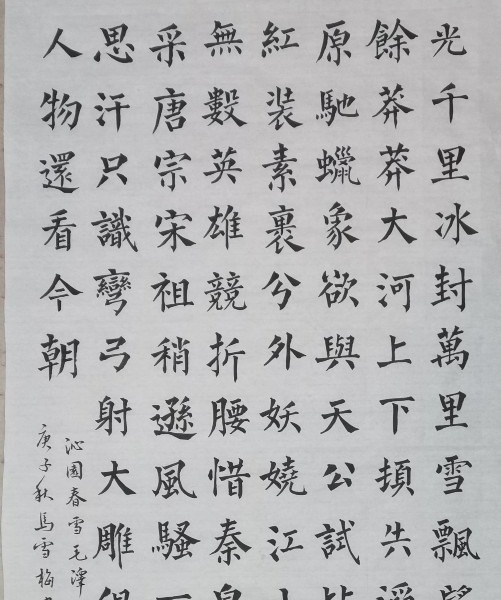 光千里冰封萬里雪飄
餘莽莽大河上下頓失
原馳蠟象欲與天公試
紅裝素裹分外妖嬈江
無數英雄競折腰惜秦
采唐宗宋祖稍遜風騷
思汗只識彎弓射大雕
人物還看今朝
沁園春雪毛澤
庚子秋馬雪梅